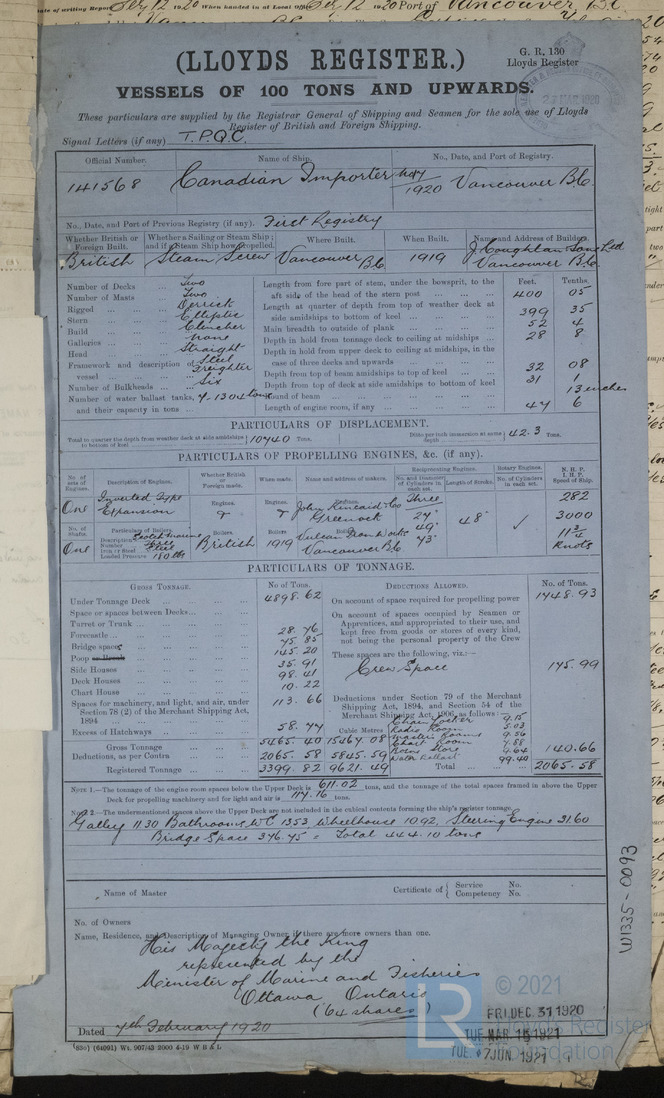 Sep 12 1920 When handed in at Local Office Sep 12 1920 Port of Vancouver B.C.
(LLOYDS REGISTER.)
G. R. 130
Lloyds Register
VESSELS OF 100 TONS AND UPWARDS.
These particulars are supplied by the Registrar General of Shipping and Seamen for the sole use of Lloyds
Register of British and Foreign Shipping.
Signal Letters (if any) T.P.Q.C.
Official Number. Name of Ship. No., Date, and Port of Registry.
141568 Canadian Importer 1920 Vancouver B.C.
No., Date, and Port of Previous Registry (if any). First Registry
Whether British or Foreign Built. Whether a Sailing or Steam Ship; and if a Steam Ship how propelled. Where Built. When Built. Name and Address of Builders
British Steam Screw Vancouver B.C. 1919 J. Coughlan Sons Ltd Vancouver B.C.
Feet. Tenths.
Number of Decks Two
Number of Masts Two
Rigged Derrick
Stern Elliptic
Build Clencher
Galleries none
Head Straight
Framework and description of vessel Steel Freighter
Number of Bulkheads Six
Number of water ballast tanks, and their capacity in tons 7-1304 tons
Length from fore part of stem, under the bowsprit, to the aft side of the head of the stern post 400 05
Length at quarter of depth from top of weather deck at side amidships to bottom of keel 399 35
Main breadth to outside of plank 52 4
Depth in hold from tonnage deck to ceiling at midships 28 8
Depth in hold from upper deck to ceiling at midships, in the case of three decks and upwards
Depth from top of beam amidships to top of keel 32 08
Depth from top of deck at side amidships to bottom of keel 31 1
Round of beam 13 inches
Length of engine room, if any 47 6
PARTICULARS OF DISPLACEMENT.
Total to quarter the depth from weather deck at side amidships to bottom of keel 10740 Tons. Ditto per inch immersion at same depth 42.3 Tons.
PARTICULARS OF PROPELLING ENGINES, &c. (if any).
No. of sets of Engines. Description of Engines. Whether British or Foreign made. When made. Name and address of makers. Reciprocating Engines. Rotary Engines. N.H.P. I.H.P. Speed of Ship.
No. and Diameter of Cylinders in each set. Length of Stroke. No. of Cylinders in each set.
One Inverted Type Expansion Engines. Engines. Engines. John Kincaid & Co Greenock Three 27" 48" 282
No. of Shafts. Particulars of Boilers. Boilers Boilers Boilers 49" 3000
One Description Scotch marine
Number Three
Iron or Steel Steel
Loaded Pressure 180 lbs British 1919 Vulcan Iron Works Vancouver B.C. 73" 11 3/4 knots
PARTICULARS OF TONNAGE.
GROSS TONNAGE. No. of Tons. DEDUCTIONS ALLOWED. No. of Tons.
Under Tonnage Deck 4898.62
Space or spaces between Decks
Turret or Trunk
Forecastle 28.76
Bridge spaces 75 85
Poop or Break 145 20
Side Houses 35.91
Deck Houses 98.41
Chart House 10.22
Spaces for machinery, and light, and air, under Section 78 (2) of the Merchant Shipping Act, 1894 113.66
Excess of Hatchways 58.77
Gross Tonnage 5465.40 15467.08
Deductions, as per Contra 2065.58 5845.59
Registered Tonnage 3399.82 9621.49
Cubic Metres
On account of space required for propelling power 1748.93
On account of spaces occupied by Seamen or Apprentices, and appropriated to their use, and kept free from goods or stores of every kind, not being the personal property of the Crew
These spaces are the following, viz.:—
Crew Space 175.99
Deductions under Section 79 of the Merchant Shipping Act, 1894, and Section 54 of the Merchant Shipping Act, 1906, as follows:—
Chain Locker 9.15
Radio Room 5.03
Masters Rooms 9.56
Chart Room 7.88
Bosns Store 9.64
Water Ballast 99.40
140.66
Total 2065.58
NOTE 1.—The tonnage of the engine room spaces below the Upper Deck is 611.02 tons, and the tonnage of the total spaces framed in above the Upper
Deck for propelling machinery and for light and air is 117.16 tons.
NOTE 2.—The undermentioned spaces above the Upper Deck are not included in the cubical contents forming the ship's register tonnage.
Galley 11.30 Bathrooms WC 13.53, Wheelhouse 10.92, Steering Engine 31.60
Bridge Space 376.75 = Total 444.10 tons
Name of Master Certificate of { Service No. Competency No.
No. of Owners
Name, Residence, and Description of Managing Owner if there are more owners than one.
His Majesty the King
represented by the
Minister of Marine and Fisheries
Ottawa Ontario
(64 shares)
Dated 7th February 1920
(63c) (64091) Wt. 907/43 2000 4-19 W B & L
W1335-0093
© 2021
LR
Foundation
FRI. DEC. 31 1920
TUE. MAR. 15 1921
TUE. 7 JUN. 1921